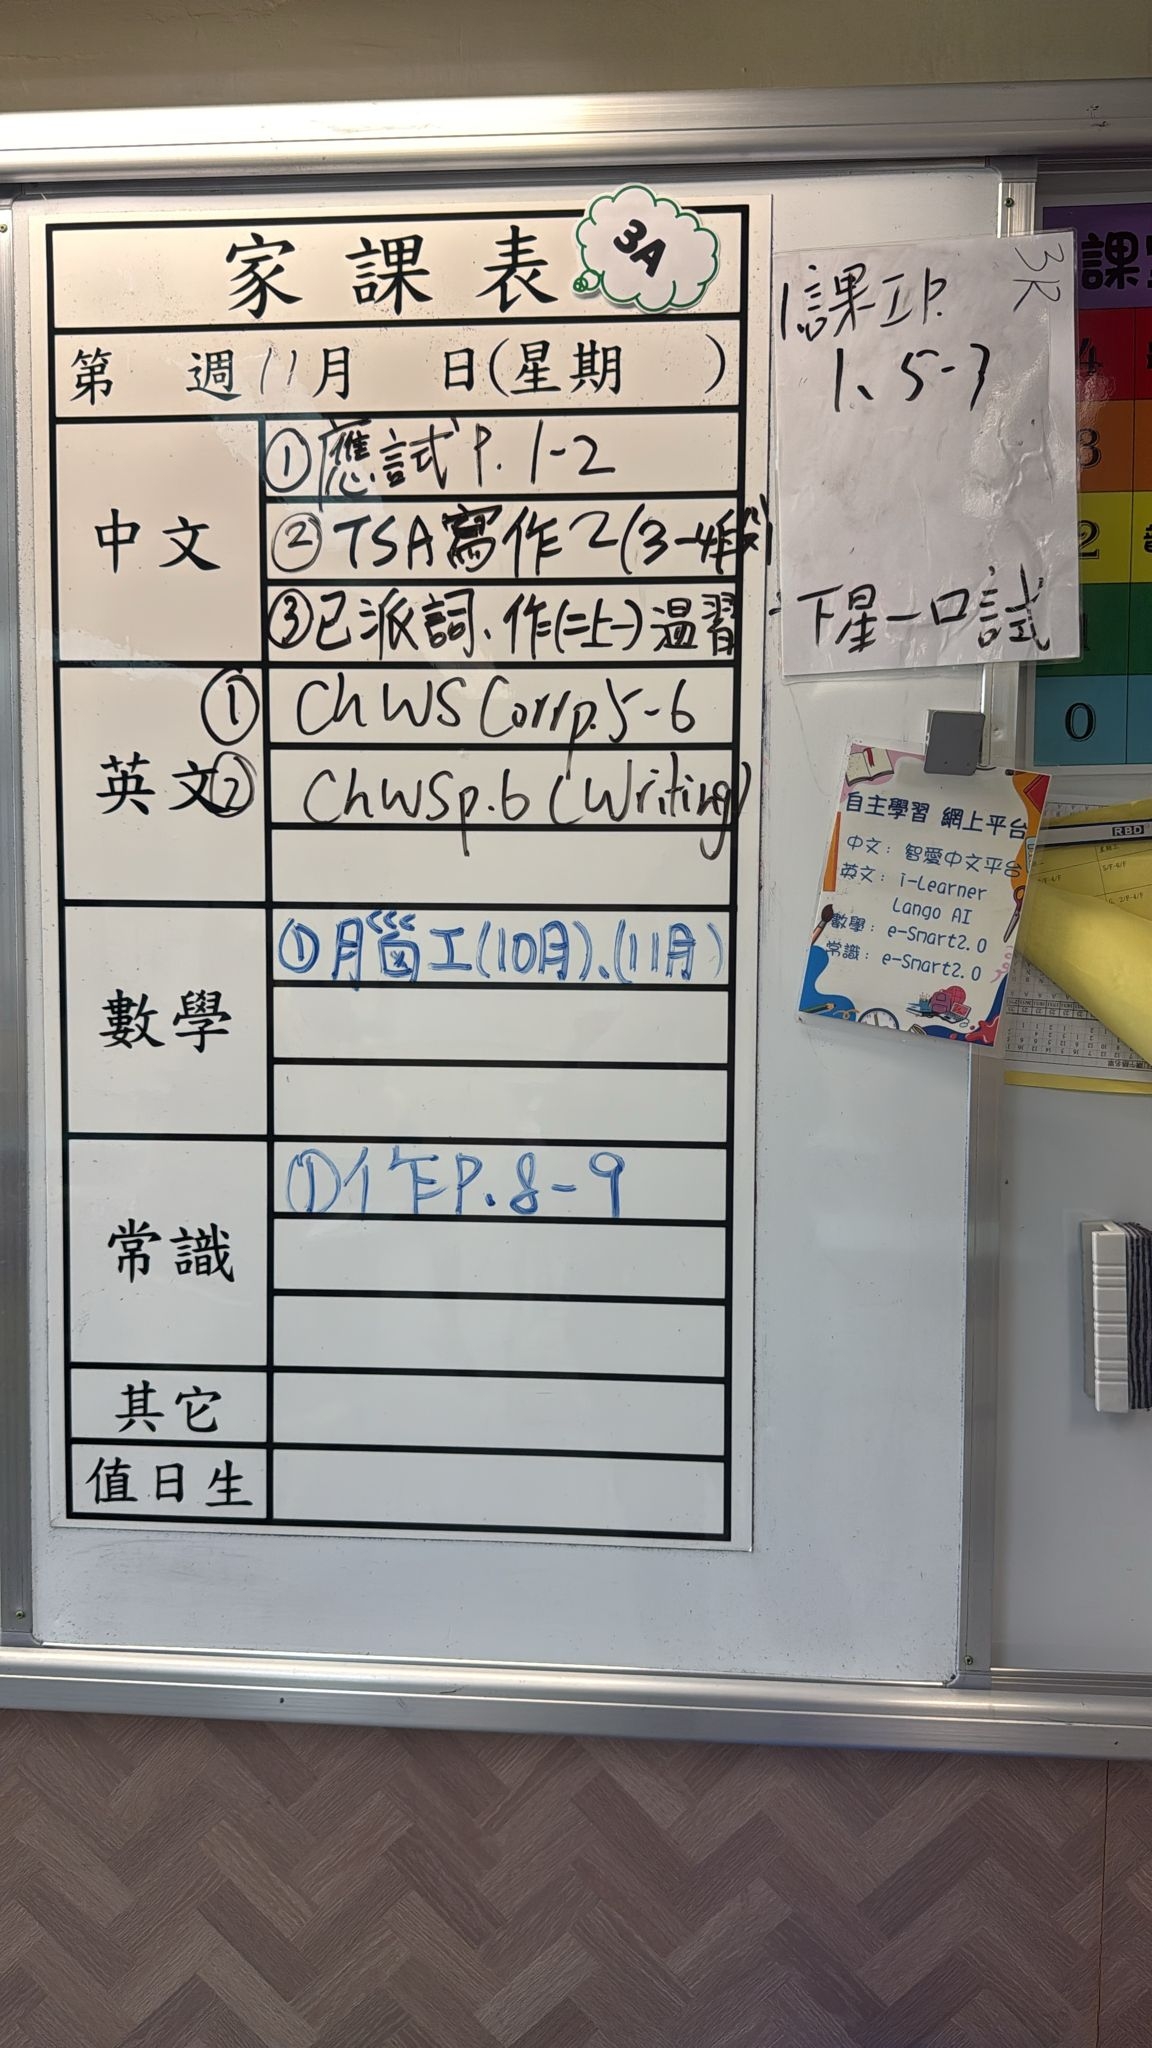 家課表
3A
第 週 11月 日(星期 )
中文
①應試P.1-2
②TSA寫作2(3-4段)
③已派詞、作(二上一)溫習
英文
① Ch WS Corr p.5-6
② Ch WS p.6 (Writing)
數學
①月腦工(10月)、(11月)
常識
①作P.8-9
其它
值日生
3R
1.課工P.
1、5-7
下星一口試
課
4
3
2
1
0
自主學習 網上平台
中文：智愛中文平台
英文：i-Learner
Lango AI
數學：e-Smart2.0
常識：e-Smart2.0
RBD